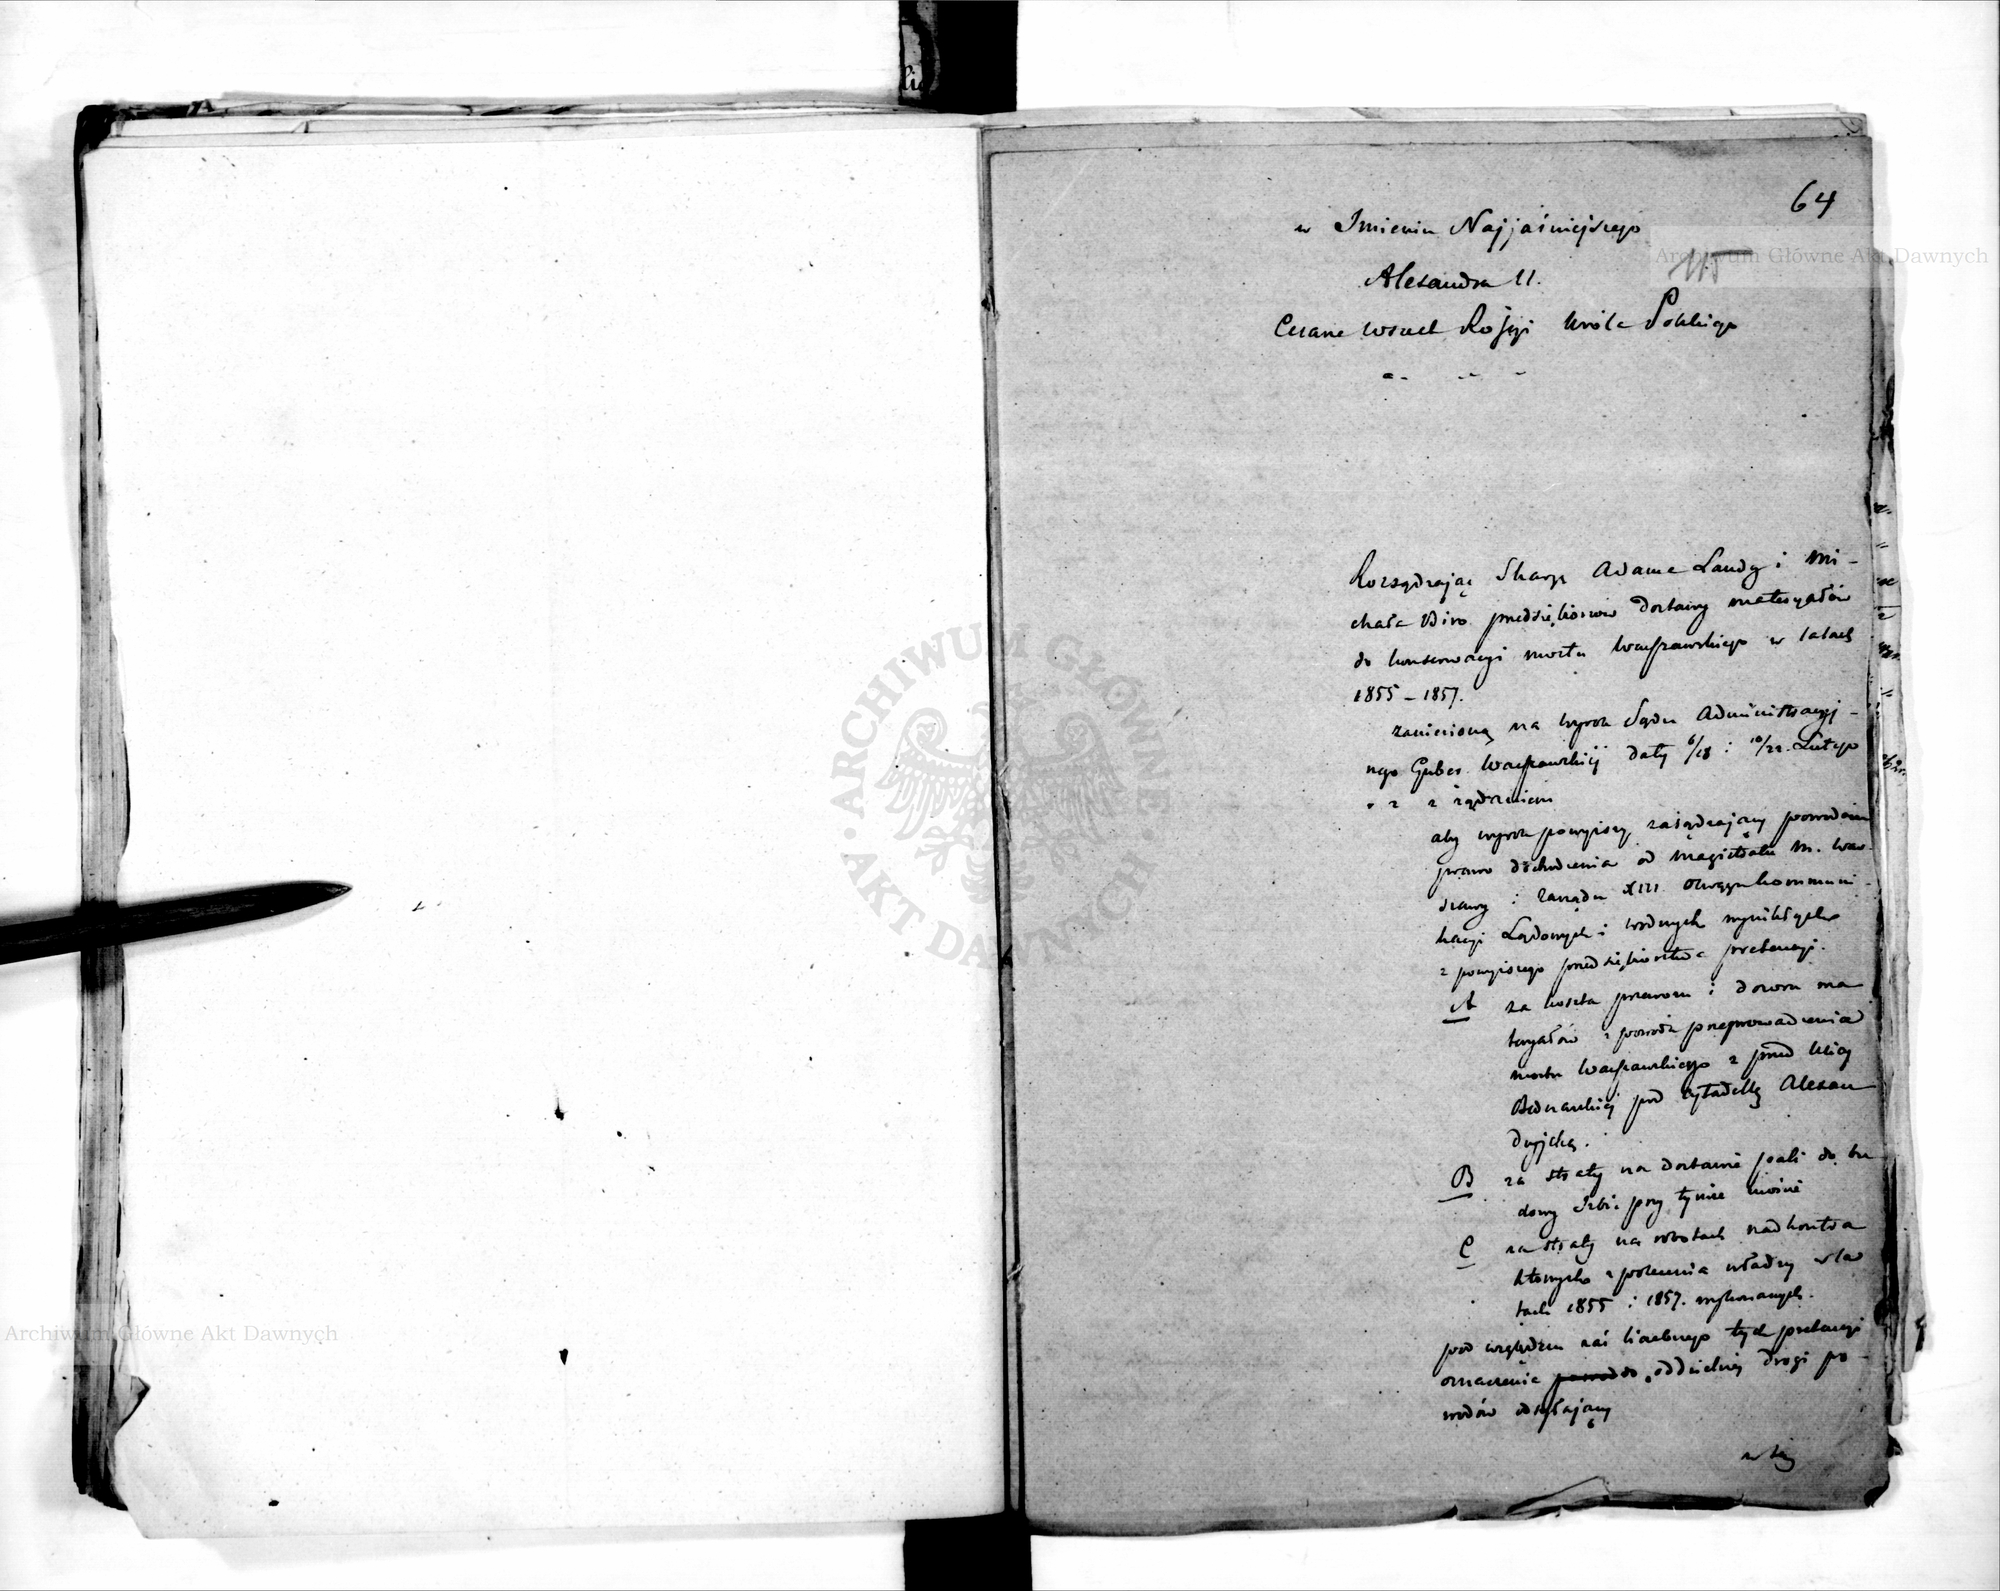 64
115
w Imieniu Najjaśniejszego
Alexandra II.
Cesarza wszech Rossyi Króla Polskiego
Rozsądzając Skargę Adama Landy i Mi-
chała Biro przedsiębiorców dostawy materyałów
do konserwacyi mostu Warszawskiego w latach
1855 – 1857.
zaniesioną na wyrok Sądu Administracyj-
nego Guber. Warszawskiej daty 6/18 i 10/22. Lutego
z żądaniem
aby wyrok powyższy zasądzający powodom
prawo dochodzenia od Magistratu M. War-
szawy i Zarządu XIII Okręgu kommuni-
kacyi Lądowych i wodnych wynikłych
z powyższego przedsiębiorstwa pretensyi.
A za koszta przewozu i dozoru ma
teryałów z powodu przeprowadzenia
mostu Warszawskiego z przed Ulicy
Bednarskiej pod cytadellę Alexan
dryjską.
B za straty na dostawie pali do bu
dowy Izbic przy tymże moście
C za straty na robotach nadkontra
ktowych z polecenia władzy w la
tach 1855 i 1857. wykonanych.
pod względem zaś liczebnego tych pretensyi
oznaczenia do oddzielnej drogi po-
wodów odsyłający
w tej
Archiwum Główne Akt Dawnych
Archiwum Główne Akt Dawnych
ARCHIWUM GŁÓWNE
AKT DAWNYCH